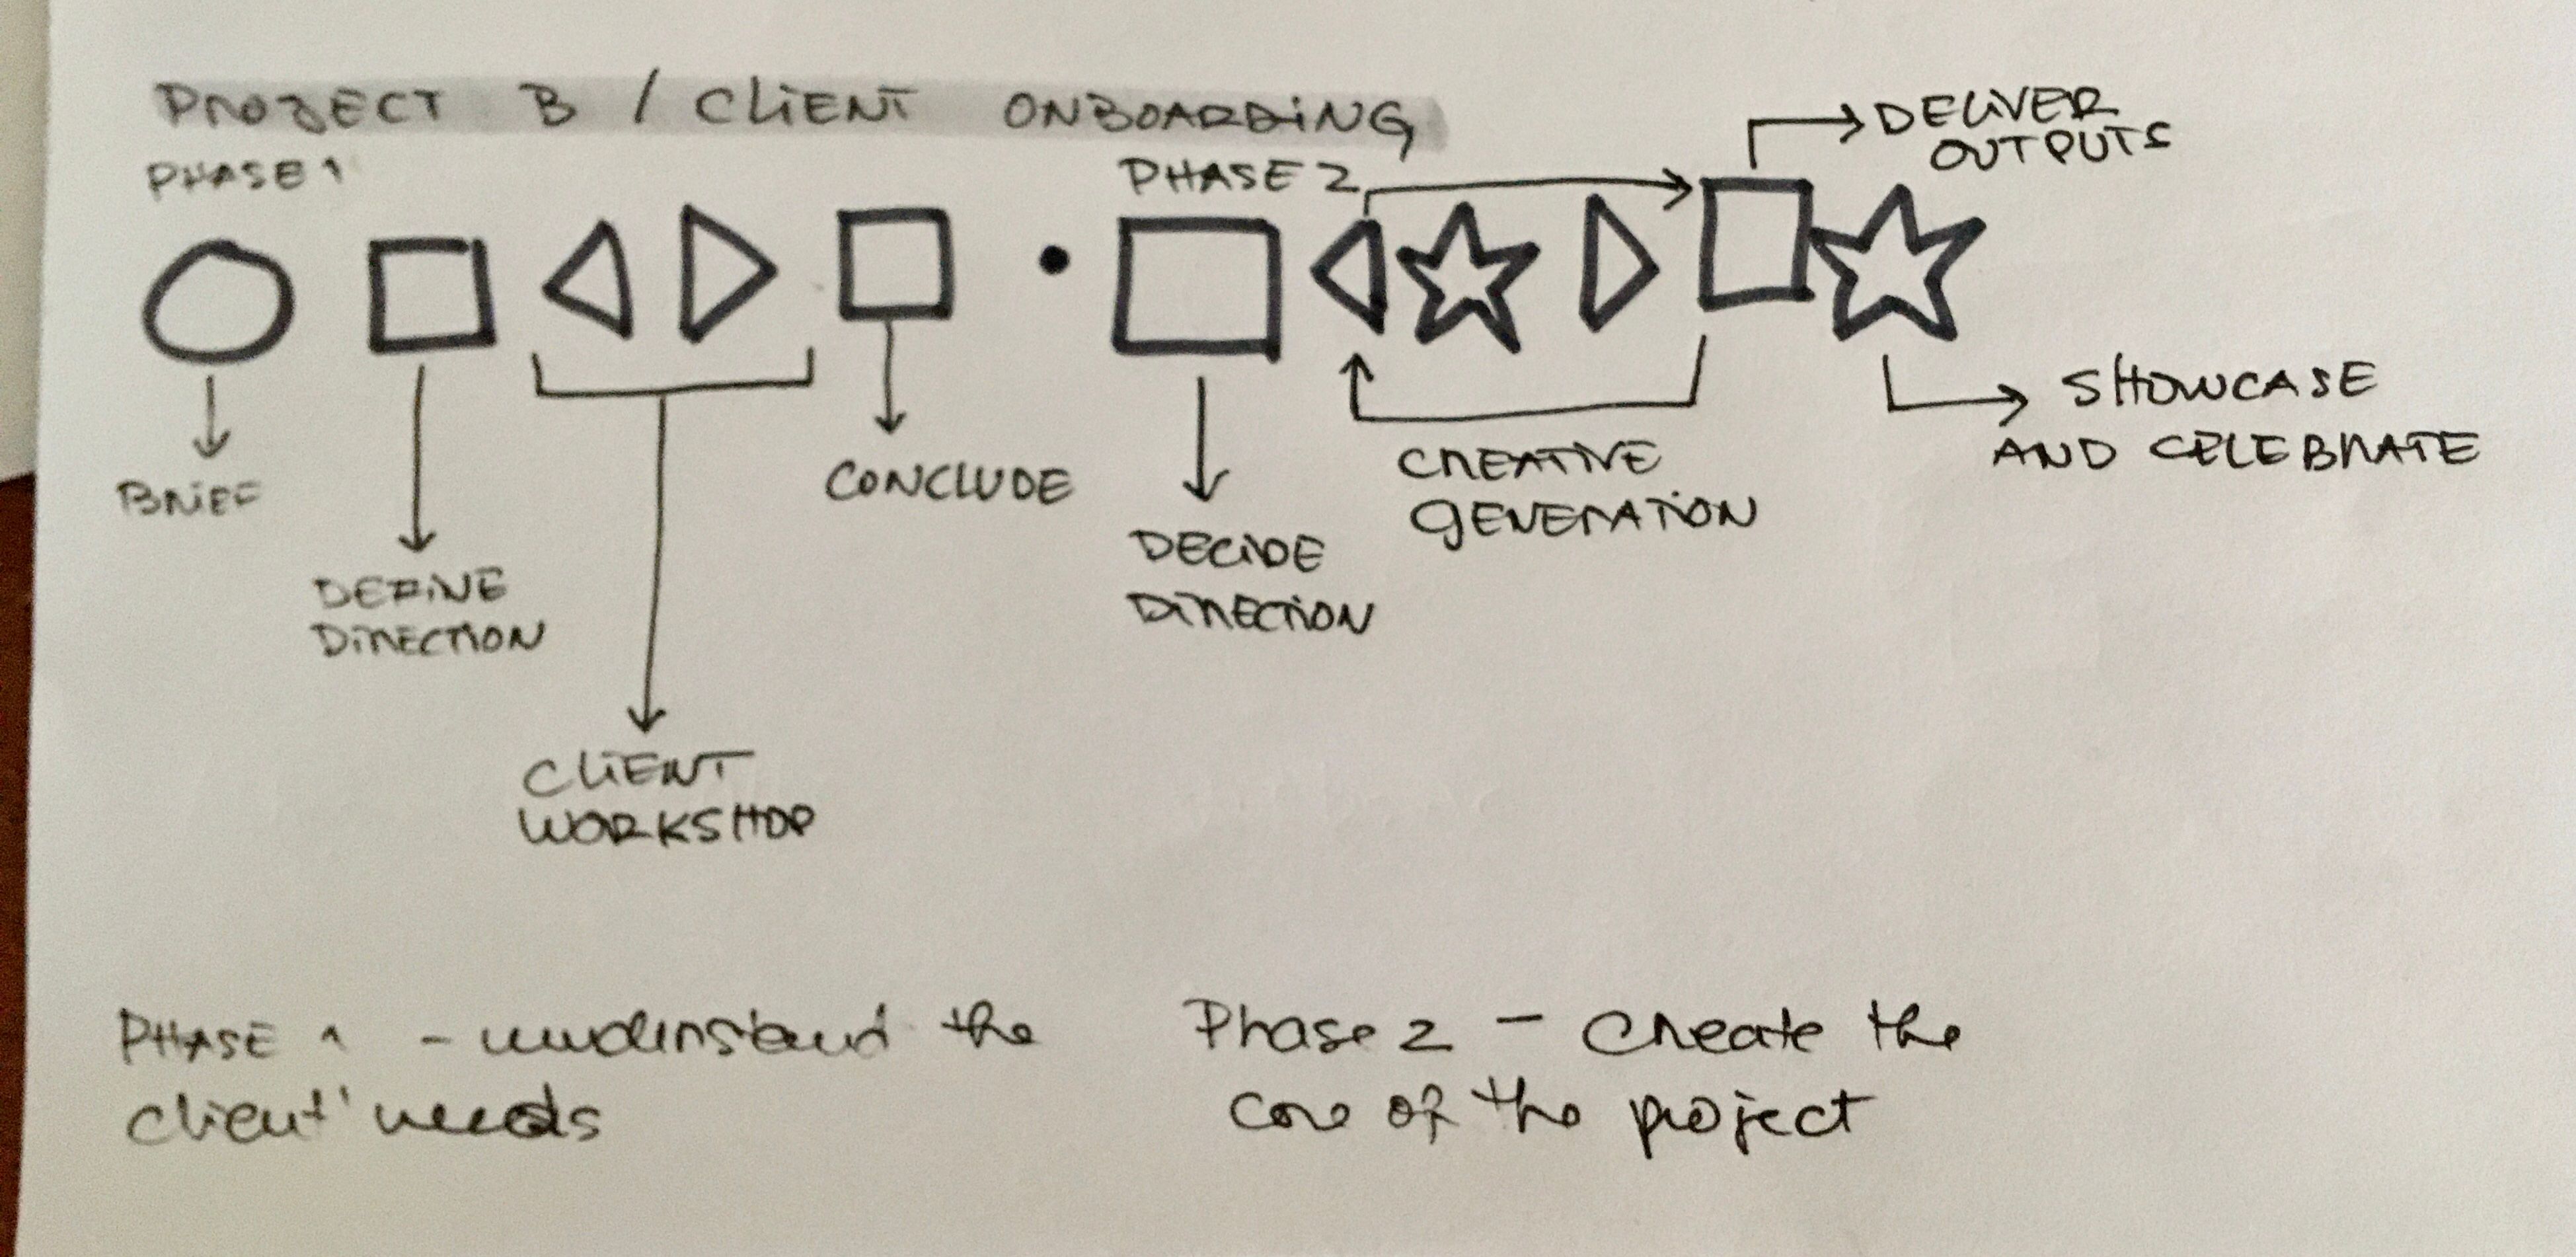 PROJECT B / CLIENT ONBOARDING
PHASE 1
PHASE 2
DELIVER
OUTPUTS
BRIEF
DEFINE
DIRECTION
CLIENT
WORKSHOP
CONCLUDE
DECIDE
DIRECTION
CREATIVE
GENERATION
SHOWCASE
AND CELEBRATE
PHASE 1 - understand the
client' needs
Phase 2 - Create the
core of the project